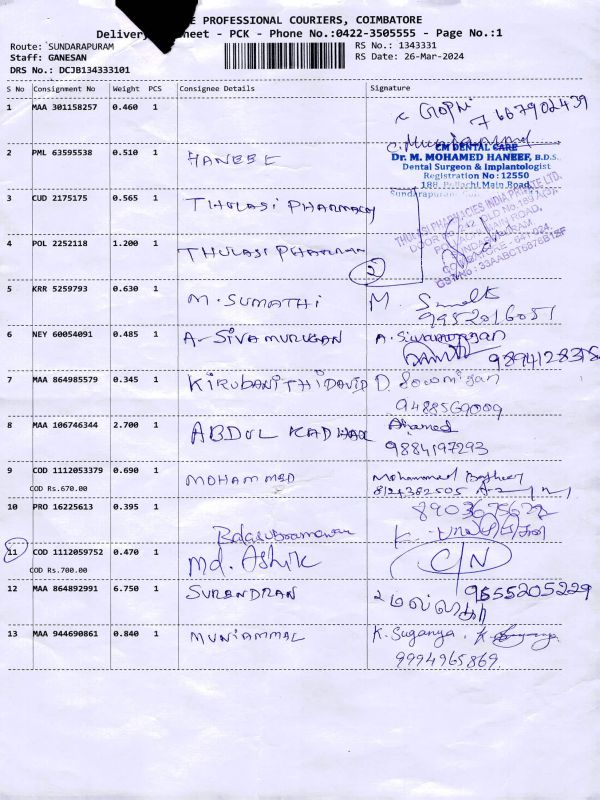 E PROFESSIONAL COURIERS, COIMBATORE
Delivery Sheet - PCK - Phone No.:0422-3505555 - Page No.:1
Route: SUNDARAPURAM
RS No.: 1343331
Staff: GANESAN
RS Date: 26-Mar-2024
DRS No.: DCJB134333101
S No Consignment No Weight PCS Consignee Details Signature
1 MAA 301158257 0.460 1 Gophi 7667902439
2 PML 63595538 0.510 1 HANEEF
CM DENTAL CARE
Dr. M. MOHAMED HANEEF, B.D.S.
Dental Surgeon & Implantologist
Registration No : 12550
188, Pollachi Main Road,
Sundarapuram
3 CUD 2175175 0.565 1 THULASI PHARMACY
THULASI PHARMACIES INDIA PRIVATE LTD.
4 POL 2252118 1.200 1 THULASI PHARMACY
2
5 KRR 5259793 0.630 1 M. SUMATHI M.
9952016051
6 NEY 60054091 0.485 1 A-SIVAMURUGAN A. Sivamurugan
9894128378
7 MAA 864985579 0.345 1 KIRUBANITHI DAVID D. Sowmiyan
9488569009
8 MAA 106746344 2.700 1 ABDUL KADHAR Ahamed
9884197293
9 COD 1112053379 0.690 1 MOHAMMED Mohammed Basheer
COD Rs.670.00
8124382505
10 PRO 16225613 0.395 1 Balasubramanian
8903675672
11 COD 1112059752 0.470 1 Md. Ashik C/N
COD Rs.700.00
12 MAA 864892991 6.750 1 SURENDRAN 9655205229
13 MAA 944690861 0.840 1 MUNIAMMAL K. Suganya, K. Suganya
9994965869